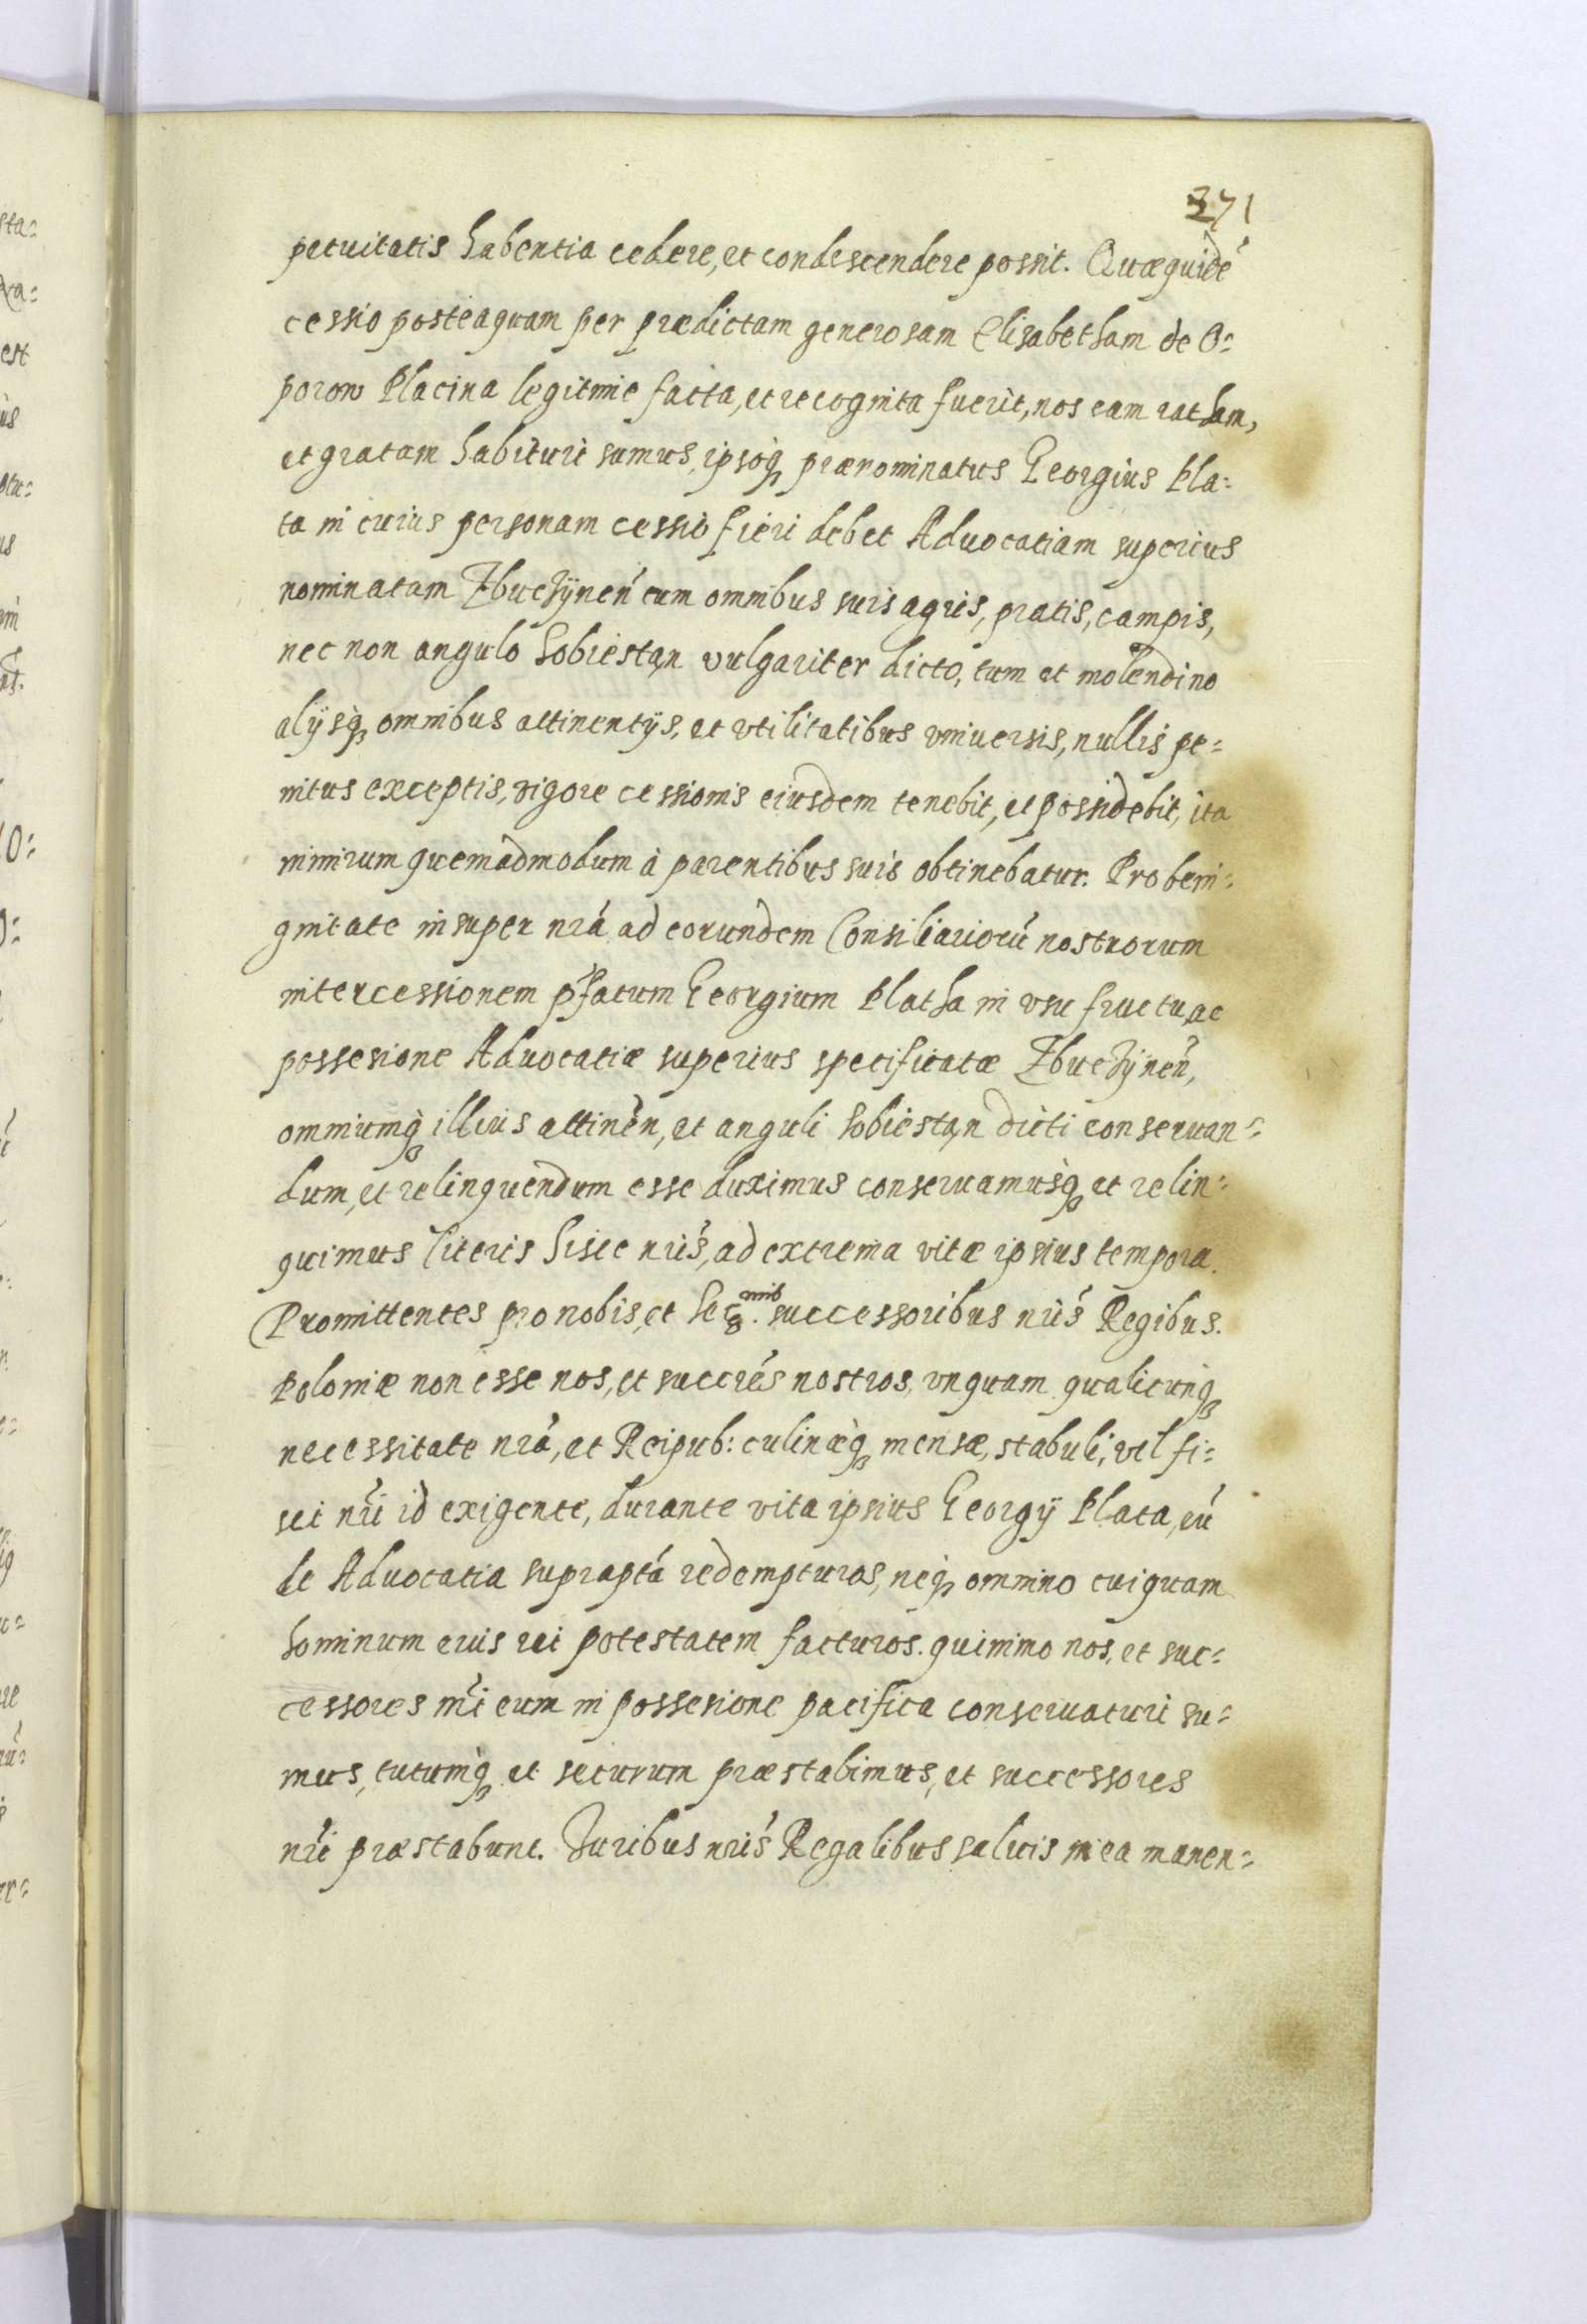 371
petuitatis habentia cedere, et condescendere possit. Quæquidē
cessio posteaquam per prædictam generosam Elisabetham de O=
porow Placina legitime facta, et recognita fuerit, nos eam ratham,
et gratam habituri sumus, ipsoq3 prænominatus Georgius Pla=
ta in cuius personam cessio fieri debet Aduocatiam superius
nominatam Zbuczÿneń cum omnibus suis agris, pratis, campis,
nec non angulo Sobiestąn vulgariter dicto, tum et molendino
alÿsq3 omnibus attinentÿs, et vtilitatibus vniuersis, nullis pe=
nitus exceptis, vigore cessionis eiusdem tenebit, et possidebit, ita
nimirum quemadmodum à parentibus suis obtinebatur. Pro beni=
gnitate insuper nrá ad eorundem Consiliariorú nostrorum
intercessionem pfatum Georgium Platha in vsu fructu, ac
possesione Aduocatiæ superius specificatæ Zbuczÿneń,
omniumq3 illius attineń, et anguli Sobiestąn dicti conseruan=
dum, et relinquendum esse duximus conseruamusq3 et relin=
quimus literis hisce nrís, ad extrema vitæ ipsius tempora.
Promittentes pro nobis, et successoribus nrís Regibus.
Poloniæ non esse nos, et succrés nostros, vnquam qualicunq3
necessitate nrá, et Reipub: culinæq3 mensæ, stabuli, vel fi=
sci nrí id exigente, durante vita ipsius Georgÿ Plata, eú
de Aduocatia supraptá redempturos, neq3 omnino cuiquam
hominum eius rei potestatem facturos. quinimo nos, et suc=
cessores nrí eum in possesione pacifica conseruaturi su=
mus, tutumq3 et securum præstabimus, et successores
nrí præstabunt. Juribus nrís Regalibus saluis in ea manen=